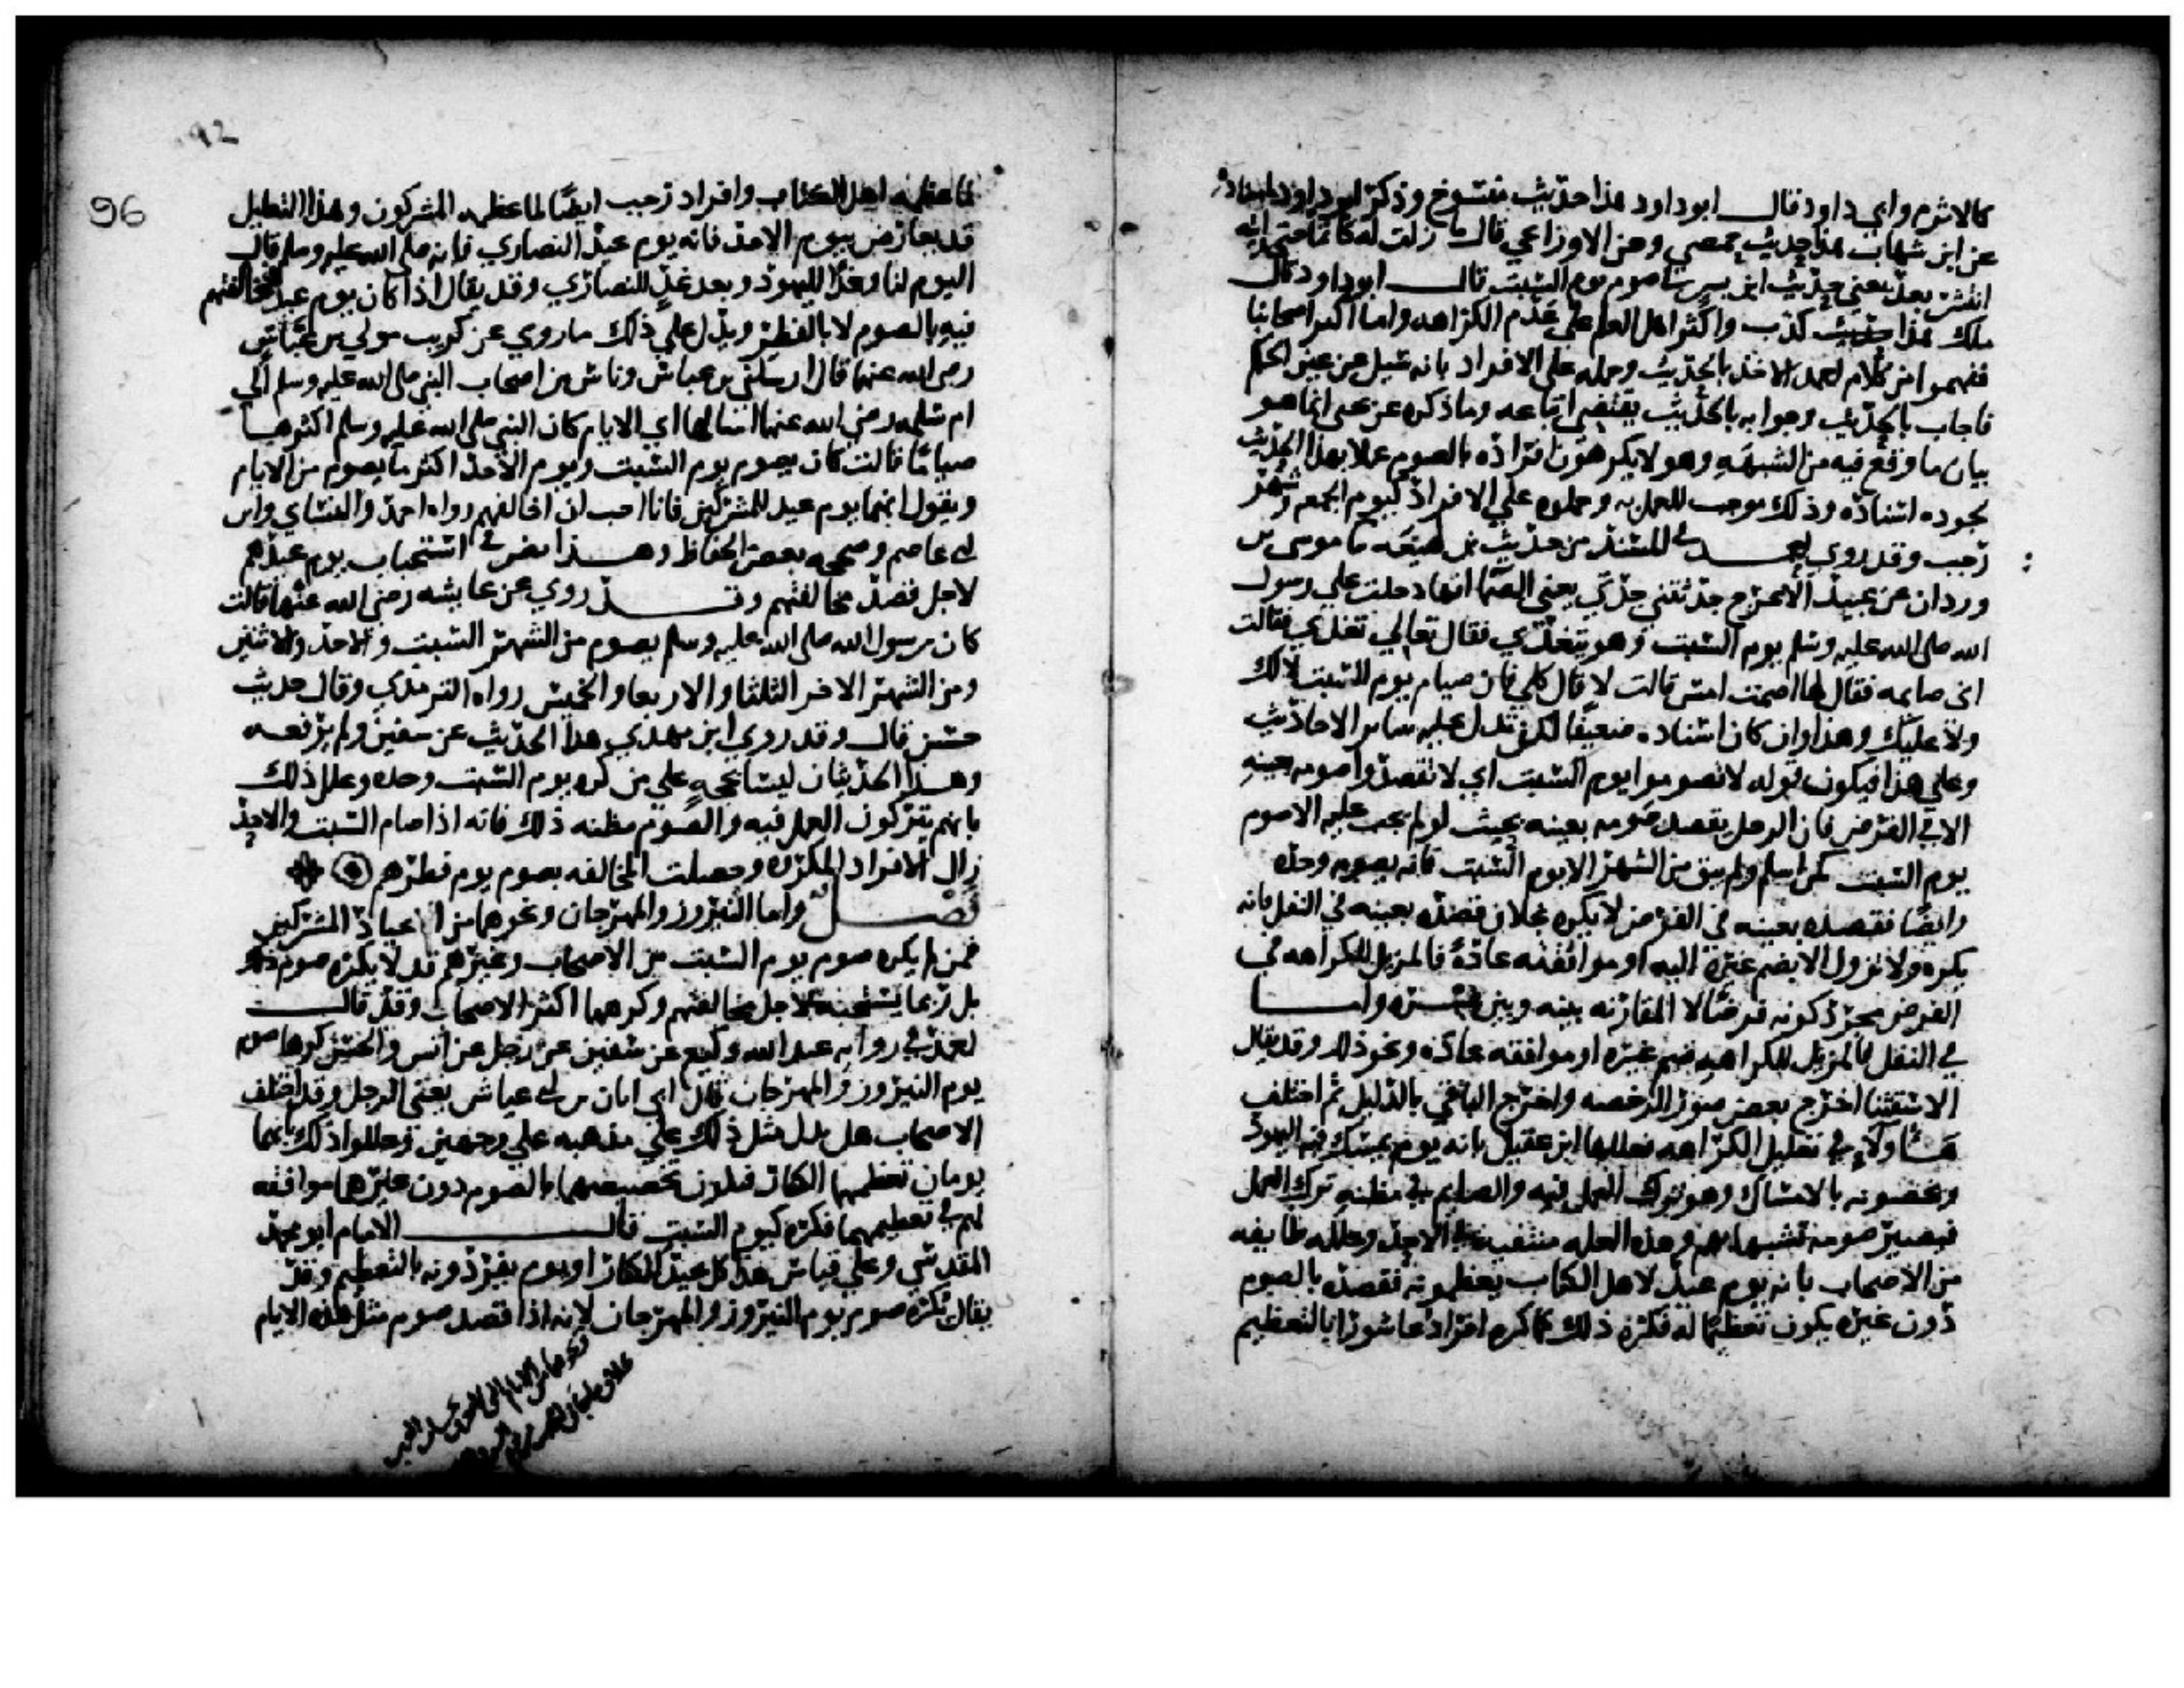 كالاثرم وابي داود قال ابو داود هذا حديث منسوخ وذكر ابو داود باسناده
عن ابن شهاب هذا حديث حمصي وعن الاوزاعي قال ما زلت له كاتما حتى رايته
انتشر بعد يعني حديث ابن بسر في صوم يوم السبت قال ابو داود قال
ملك هذا حديث كذب واكثر اهل العلم على عدم الكراهه واما اكثر اصحابنا
ففهموا من كلام احمد الاخذ بالحديث وحمله على الافراد بانه سئل عن عين الحكم
فاجاب بالحديث وجوابه بالحديث يقتضي اتباعه وما ذكره عن يحيى انما هو
بيان ما وقع فيه من الشبهه وهولا يكرهون افراده بالصوم عملا بهذا الحديث
لجوده اسناده وذلك موجب للعمل به وحملوه علي الافراد كيوم الجمعه وشهر
رجب وقد روي احمد في المسند من حديث بن لهيعه ما موسى بن
وردان عن عبيد الاعرج حدثتني جدتي يعني الصما انها دخلت علي رسول
الله صلى الله عليه وسلم يوم السبت وهو يتغدي فقال تعالي تغدي فقالت
اني صايمه فقال لها اصمت امس قالت لا قال كلي فان صيام يوم السبت لا لك
ولا عليك وهذا وان كان اسناده ضعيفا لكن تدل عليه ساير الاحاديث
وعلي هذا فيكون قوله لا تصوموا يوم السبت اي لا تقصدوا صومه بعينه
الا في الفرض فان الرجل يقصد صومه بعينه بحيث لو لم يجب عليه الا صوم
يوم السبت كمن اسلم ولم يبق من الشهر الا يوم السبت فانه يصومه وحده
وايضا فقصده بعينه في الفرض لا يكره بخلاف قصده بعينه في النفل فانه
يكره ولا تزول الا بضم غيره اليه او موافقته عادة فالمزيل للكراهه في
الفرض مجرد كونه فرضا لا المقارنه بينه وبين غيره واما
في النفل فالمزيل للكراهه ضم غيره او موافقته عاده ونحو ذلك وقد يقال
الاستثنا اخرج بعض صور الرخصه واخرج الباقي بالدليل ثم اختلف
هاولاء في تعليل الكراهه فعللها ابن عقيل بانه يوم يمسك فيه اليهود
ويخصونه بالامساك وهو ترك العمل فيه والصايم في مظنه ترك العمل
فيصير صومه تشبها بهم وهذه العله منتفيه في الاحد وعلله طايفه
من الاصحاب بانه يوم عيد لاهل الكتاب يعظمونه فقصده بالصوم
دون غيره يكون تعظيما له فكره ذلك كما كره افراد عاشورا بالتعظيم
92
96
لما عظمه اهل الكتاب وافراد رجب ايضا لما عظمه المشركون وهذا التعليل
قد يعارض بيوم الاحد فانه يوم عيد النصاري فانه صلى الله عليه وسلم قال
اليوم لنا وغدا لليهود وبعد غد للنصارى وقد يقال اذا كان يوم عيد فمخالفتهم
فيه بالصوم لا بالفطر ويدل على ذلك ما روي عن كريب مولي بن عباس
رضى الله عنها قال ارسلني بن عباس وناس من اصحاب النبي صلى الله عليه وسلم الي
ام سلمه رضي الله عنها اسالها اي الايام كان النبي صلى الله عليه وسلم اكثرها
صياما قالت كان يصوم يوم السبت ويوم الاحد اكثر ما يصوم من الايام
ويقول انهما يوم عيد للمشركين فانا احب ان اخالفهم رواه احمد والنساي وابن
ابي عاصم وصححه بعض الحفاظ وهذا نص في استحباب يوم عيدهم
لاجل قصد مخالفتهم وقد روي عن عايشه رضي الله عنها قالت
كان رسول الله صلى الله عليه وسلم يصوم من الشهر السبت والاحد والاثنين
ومن الشهر الاخر الثلثا والاربعا والخميس رواه الترمذي وقال حديث
حسن قال وقد روي ابن مهدي هذا الحديث عن سفين ولم يرفعه
وهذا الحديثان ليسا بحجه علي من كره يوم السبت وحده وعلل ذلك
بانهم يتركون العمل فيه والصوم مظنه ذلك فانه اذا صام السبت والاحد
زال الافراد المكره وحصلت المخالفه بصوم يوم فطرهم
فصل واما النيروز والمهرجان ونحوهما من اعياد المشركين
فمن لم يكره صوم يوم السبت من الاصحاب وغيرهم قد لا يكره صوم ذلك
بل ربما يستحبه لاجل مخالفتهم وكرهها اكثر الاصحاب وقد قال
احمد في روايه عبد الله وكيع عن سفين عن رجل عن انس والحسن كرها صوم
يوم النيروز والمهرجان قال ابي ابان بن ابي عياش يعني الرجل وقد اختلف
الاصحاب هل يدل مثل ذلك علي مذهبه علي وجهين وعللوا ذلك بانهما
يومان تعظمهما الكفار فيكون تخصيصهما بالصوم دون غيرهما موافقه
لهم في تعظيمهما فكره كيوم السبت قال الامام ابو محمد
المقدسي وعلي قياس هذا كل عيد للكفار او يوم يفردونه بالتعظيم وقد
يقال يكره صوم يوم النيروز والمهرجان لانه اذا قصد صوم مثل هذه الايام